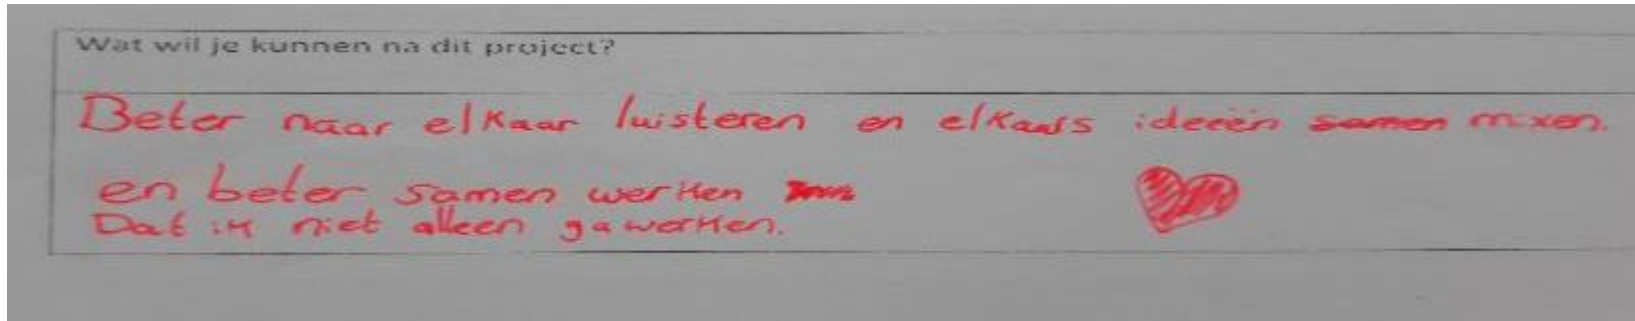 Wat wil je kunnen na dit project?
Beter naar elkaar luisteren en elkaars ideeën samen mixen.
en beter samen werken
Dat ik niet alleen ga werken.